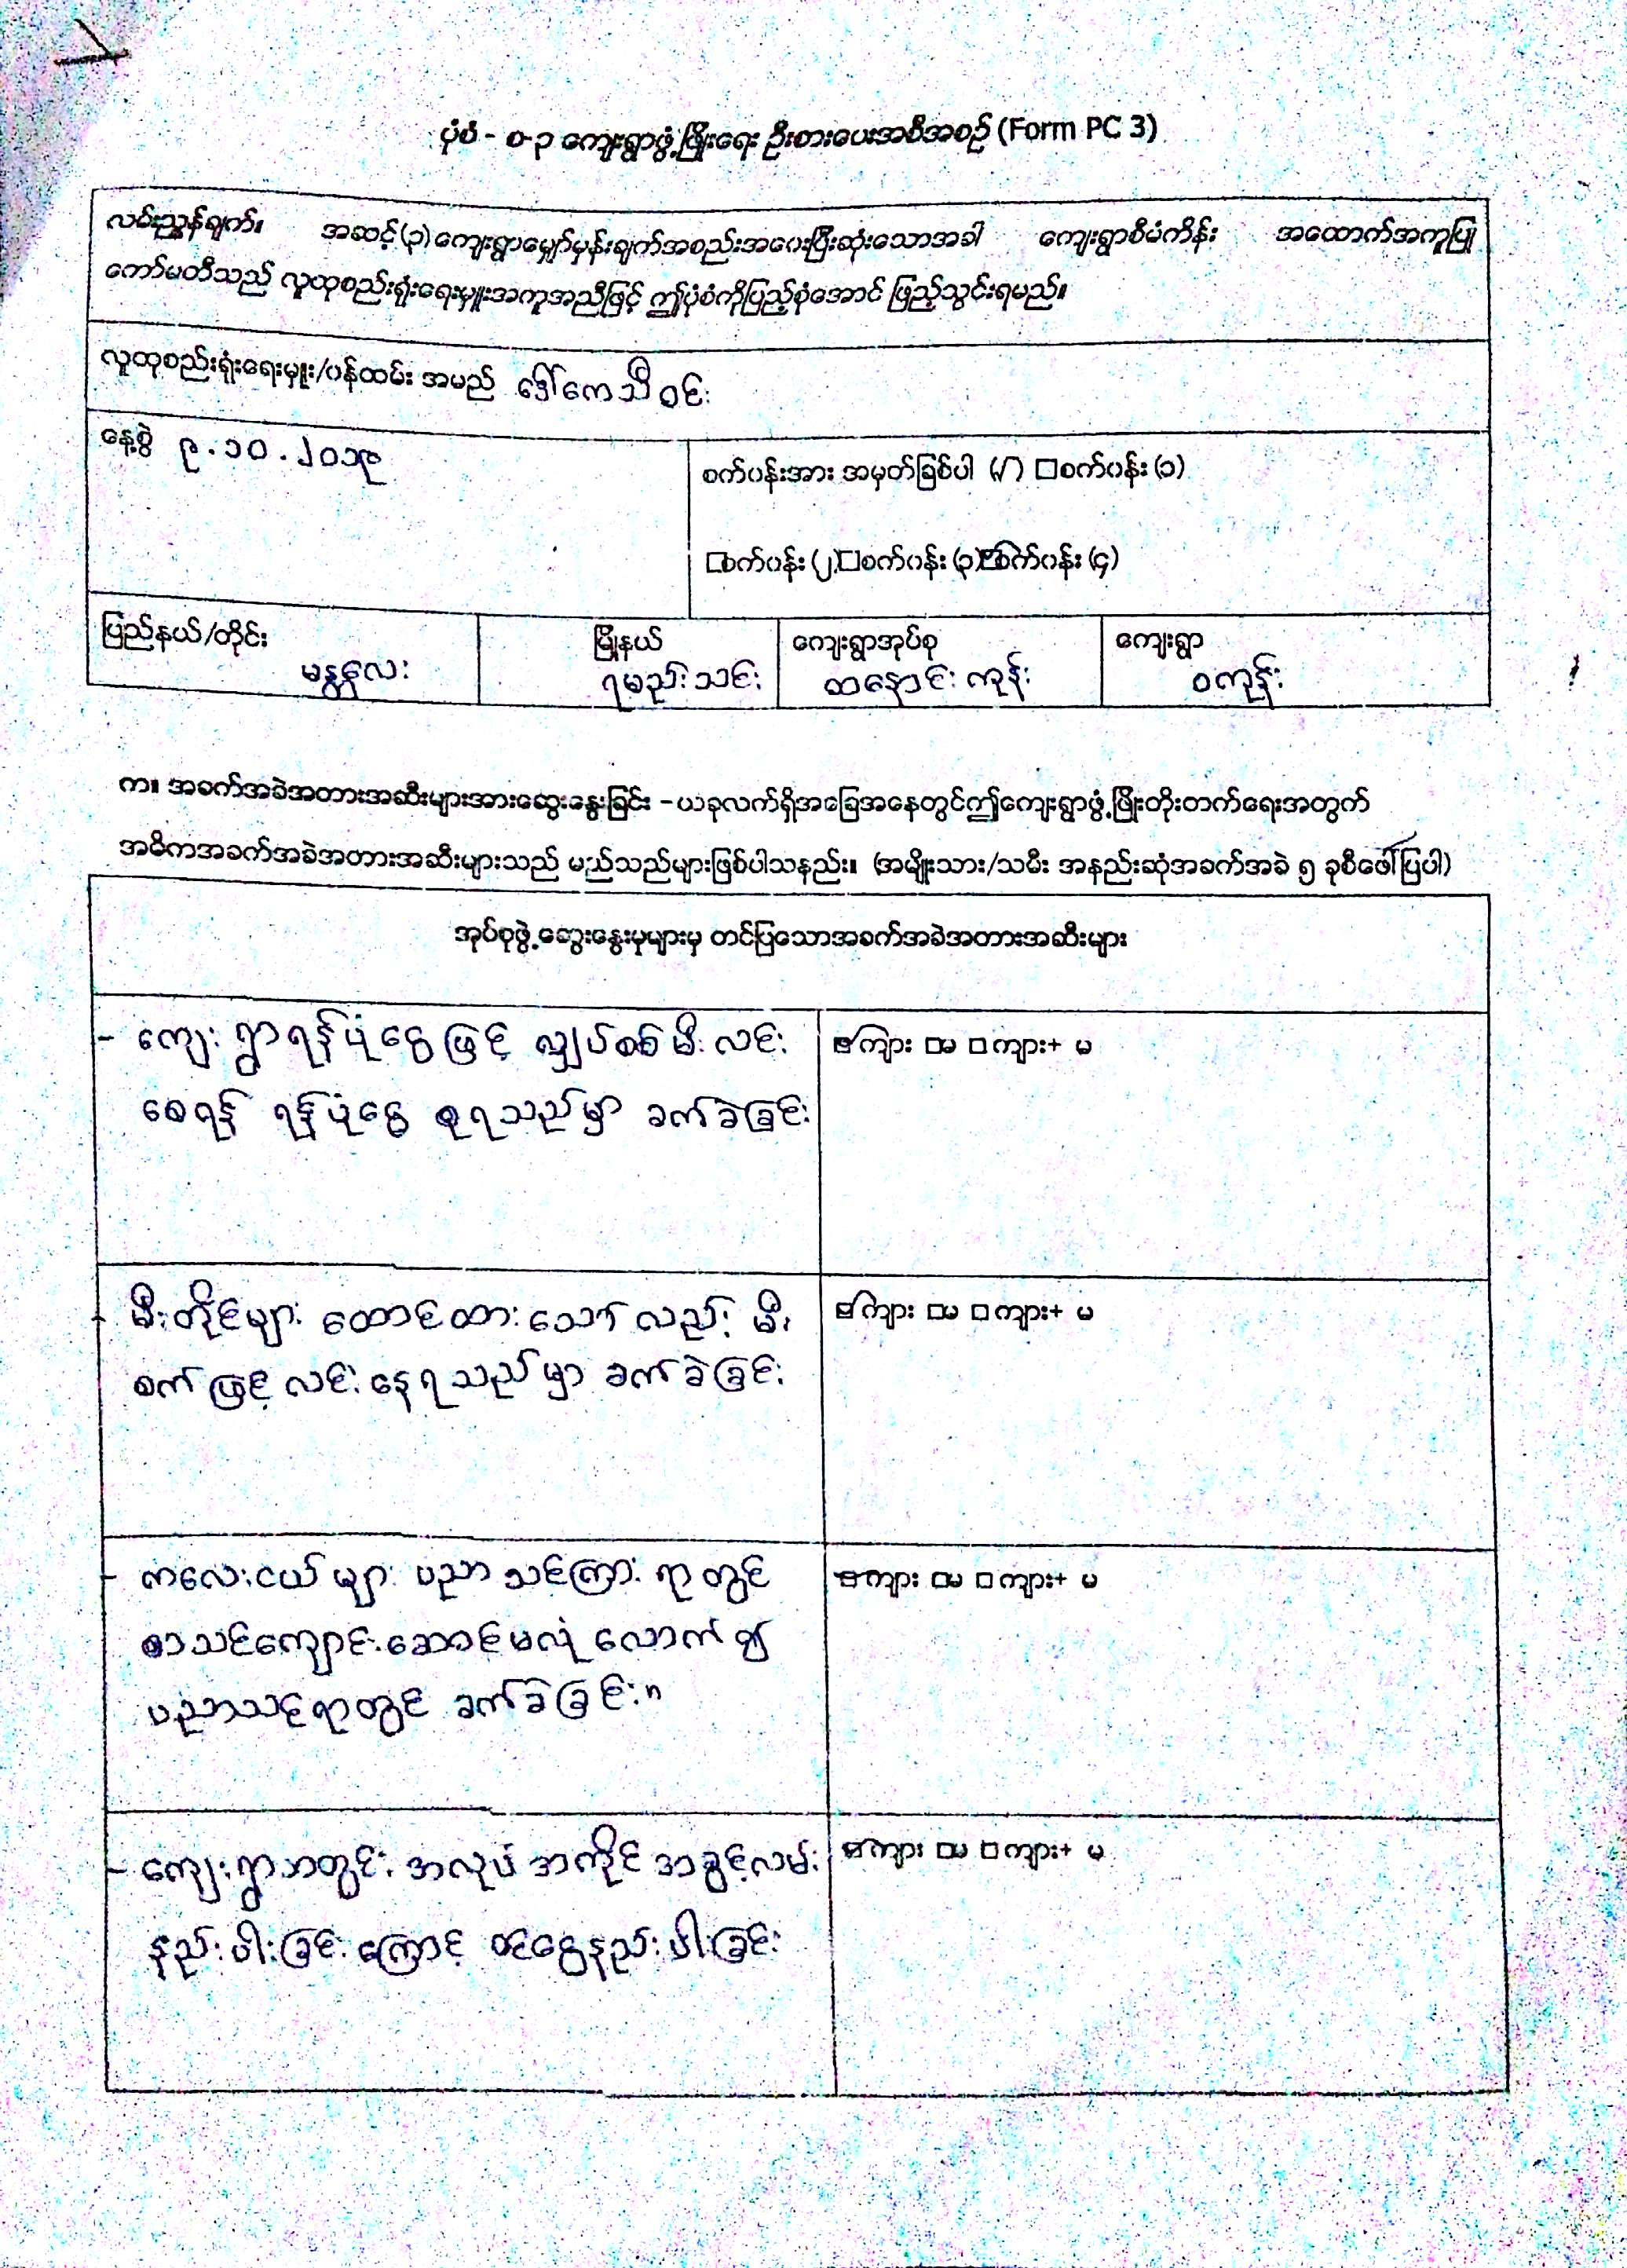 ပုံစံ - စ-၃ ကျေးရွာဖွံ့ဖြိုးရေး ဦးစားပေးအစီအစဉ် (Form PC 3)
လမ်းညွှန်ချက်။ အဆင့်(၃)ကျေးရွာမျှော်မှန်းချက်အစည်းအဝေးပြီးဆုံးသောအခါ ကျေးရွာစီမံကိန်း အထောက်အကူပြု
ကော်မတီသည် လူထုစည်းရုံးရေးမှူးအကူအညီဖြင့် ဤပုံစံကိုပြည့်စုံအောင် ဖြည့်သွင်းရမည်။
လူထုစည်းရုံးရေးမှူး/ဝန်ထမ်း အမည် ဒေါ်ကေသီဝင်း
နေ့စွဲ ၉.၁၀.၂၀၁၉
စက်ဝန်းအား အမှတ်ခြစ်ပါ (√) □စက်ဝန်း (၁)
□စက်ဝန်း (၂) □စက်ဝန်း (၃) ☑စက်ဝန်း (၄)
ပြည်နယ်/တိုင်း မြို့နယ် ကျေးရွာအုပ်စု ကျေးရွာ
မန္တလေး ရမည်းသင်း ထနောင်းကုန်း ဝကုန်း
က။ အခက်အခဲအတားအဆီးများအားဆွေးနွေးခြင်း - ယခုလက်ရှိအခြေအနေတွင်ဤကျေးရွာဖွံ့ဖြိုးတိုးတက်ရေးအတွက်
အဓိကအခက်အခဲအတားအဆီးများသည် မည်သည်များဖြစ်ပါသနည်း။ (အမျိုးသား/သမီး အနည်းဆုံအခက်အခဲ ၅ ခုစီဖေါ်ပြပါ)
အုပ်စုဖွဲ့ဆွေးနွေးမှုများမှ တင်ပြသောအခက်အခဲအတားအဆီးများ
- ကျေးရွာရန်ပုံငွေဖြင့် လျှပ်စစ်မီးလင်း ☑ကျား □မ □ကျား+ မ
စေရန် ရန်ပုံငွေ စုရသည်မှာ ခက်ခဲခြင်း
- မီးတိုင်များ ထောင်ထားသော်လည်း မီး ☑ကျား □မ □ကျား+ မ
စက်ဖြင့်လင်းနေရသည်မှာ ခက်ခဲခြင်း
- ကလေးငယ်များ ပညာသင်ကြားရာတွင် ☑ကျား □မ □ကျား+ မ
စာသင်ကျောင်းဆောင်မလုံလောက်၍
ပညာသင်ရာတွင် ခက်ခဲခြင်း။
- ကျေးရွာအတွင်း အလုပ်အကိုင်အခွင့်လမ်း ☑ကျား □မ □ကျား+ မ
နည်းပါးခြင်းကြောင့် ဝင်ငွေနည်းပါးခြင်း